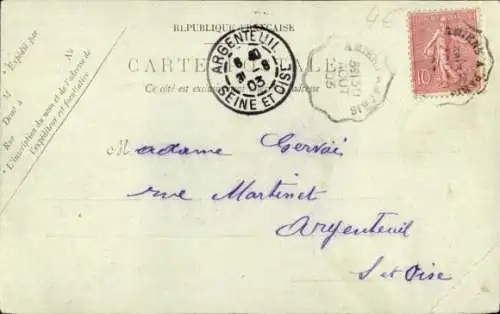 RÉPUBLIQUE FRANÇAISE
CARTE POSTALE
Ce côté est exclusivement réservé à l'adresse
* Expédié par
No
M
Demt à
Rue
* L'inscription du nom et de l'adresse de
l'expéditeur est facultative
ARGENTEUIL
31 -8
03
SEINE ET OISE
AMIENS A PARIS
30
AOUT
03
10
4€
Madame Gervais
rue Martinet
Argenteuil
S et Oise